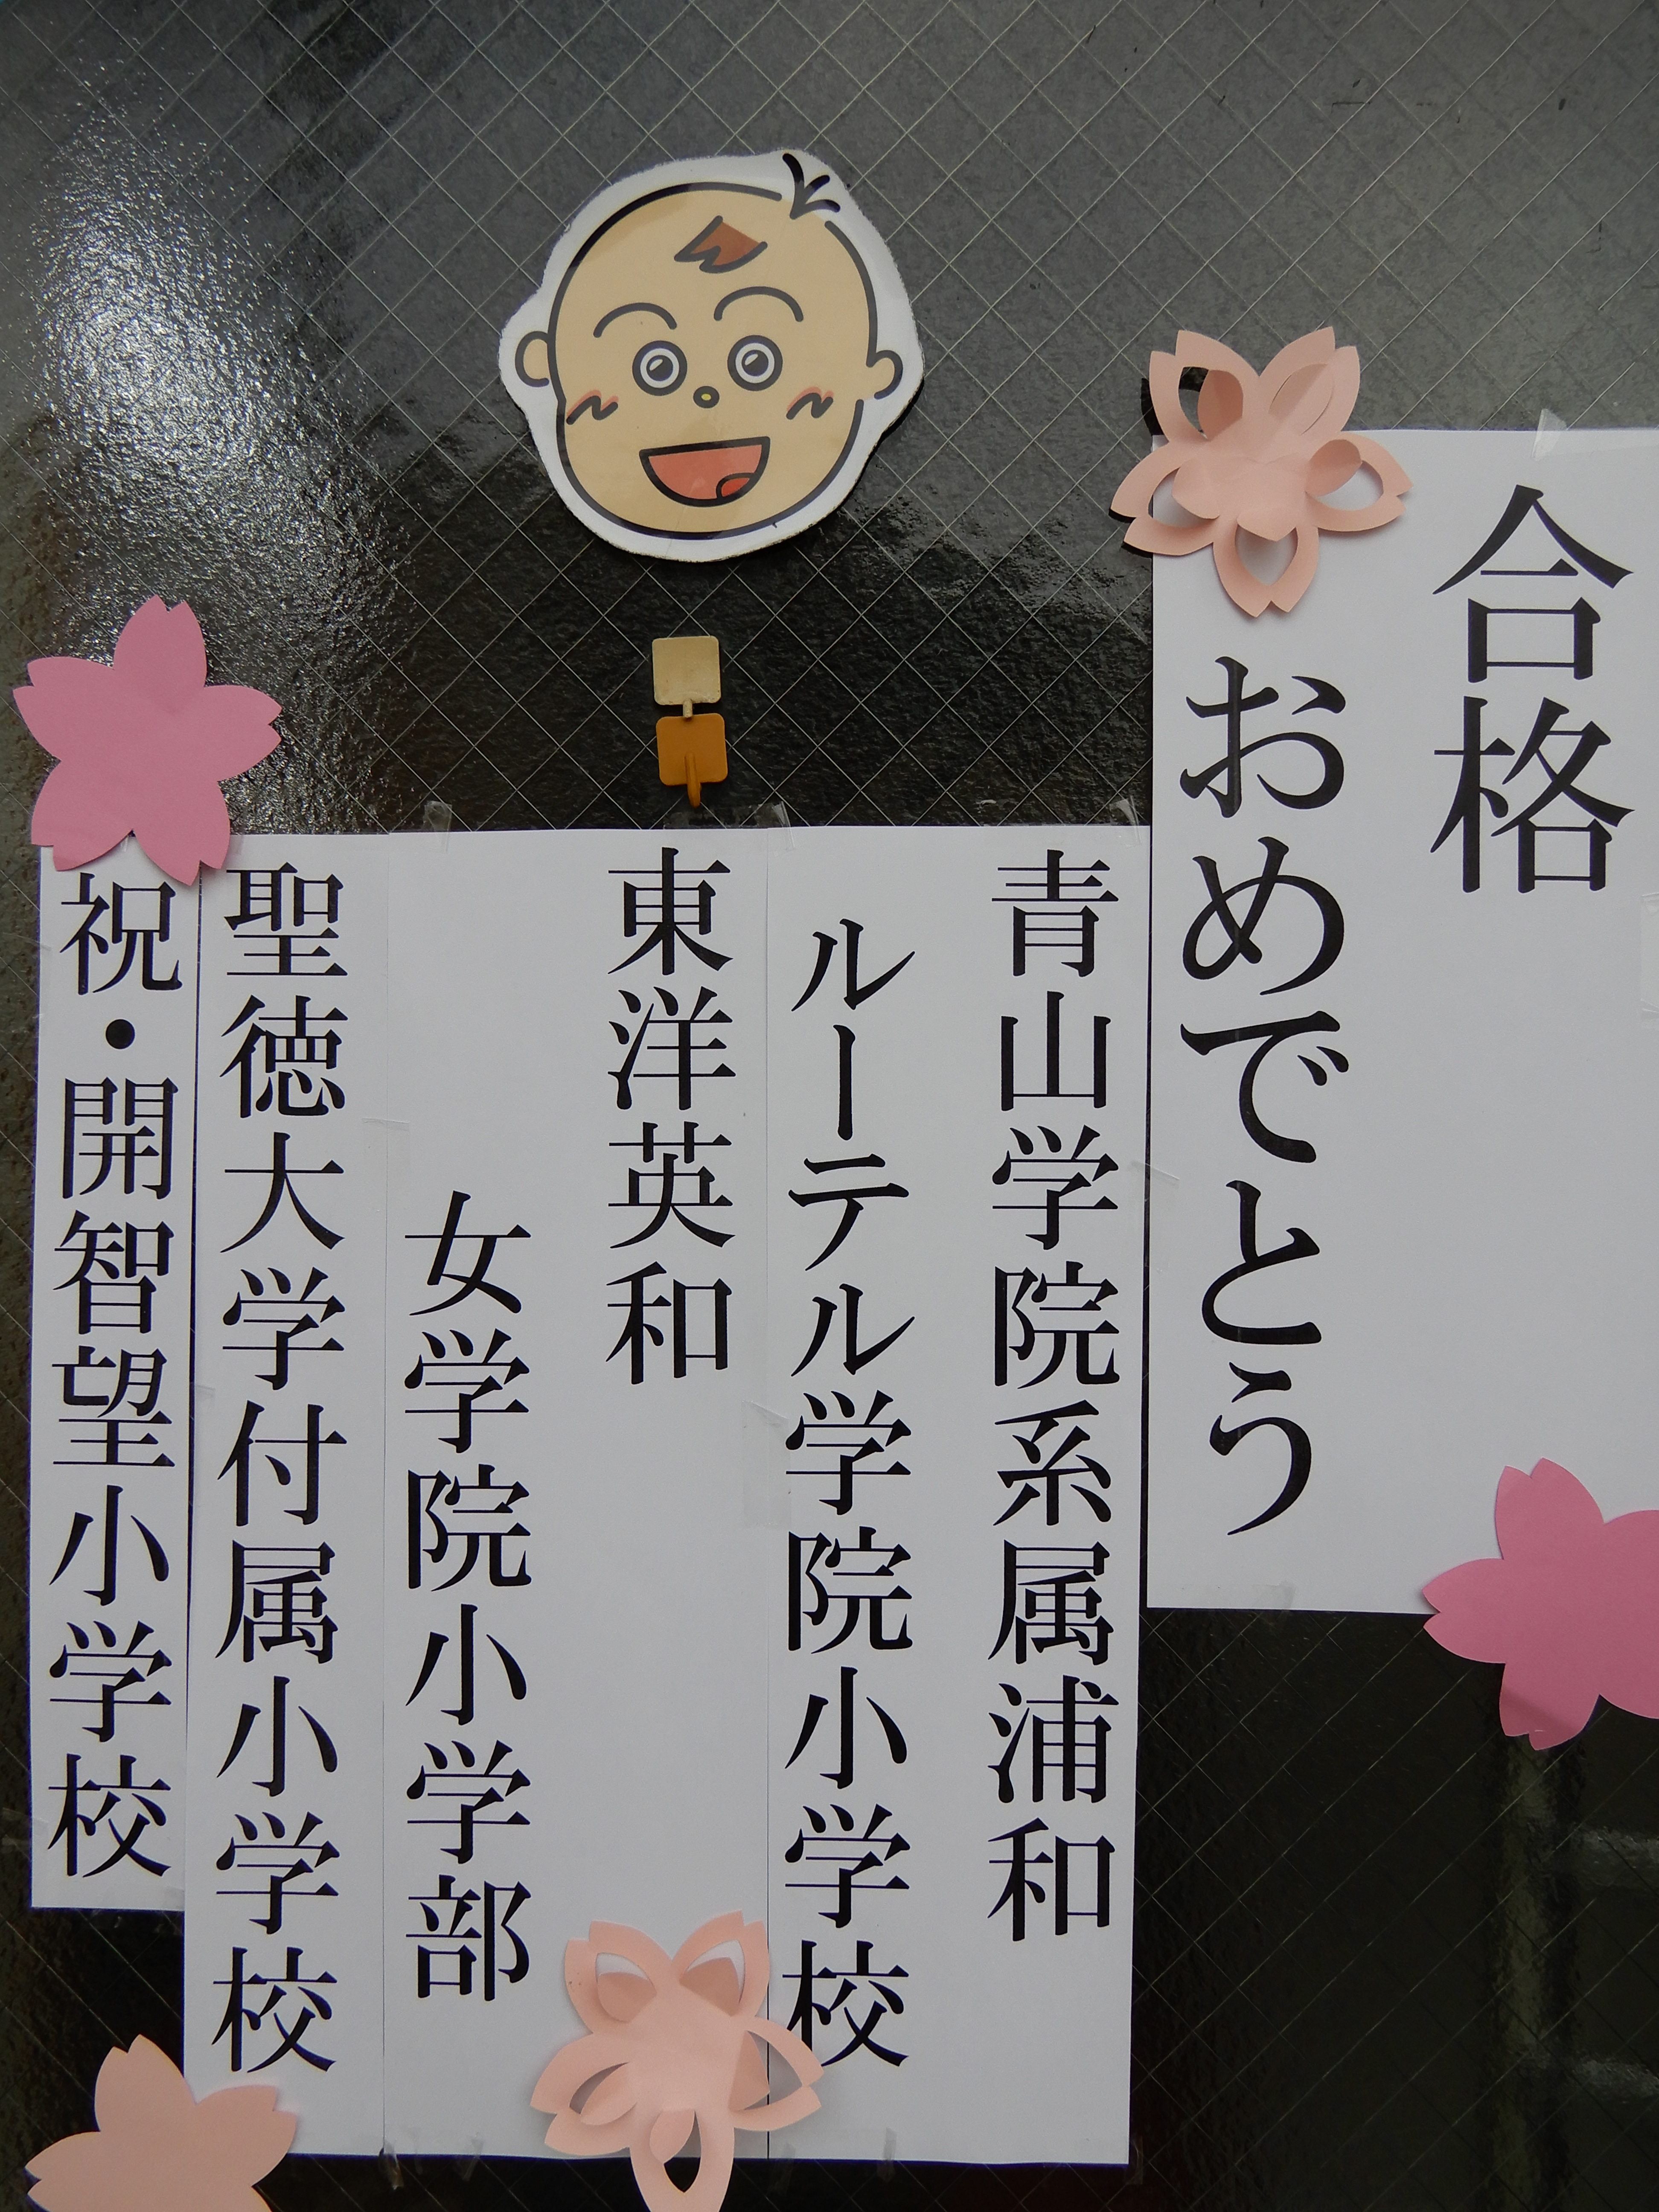 合格
おめでとう
青山学院系属浦和
ルーテル学院小学校
東洋英和
女学院小学部
聖徳大学付属小学校
祝・開智望小学校